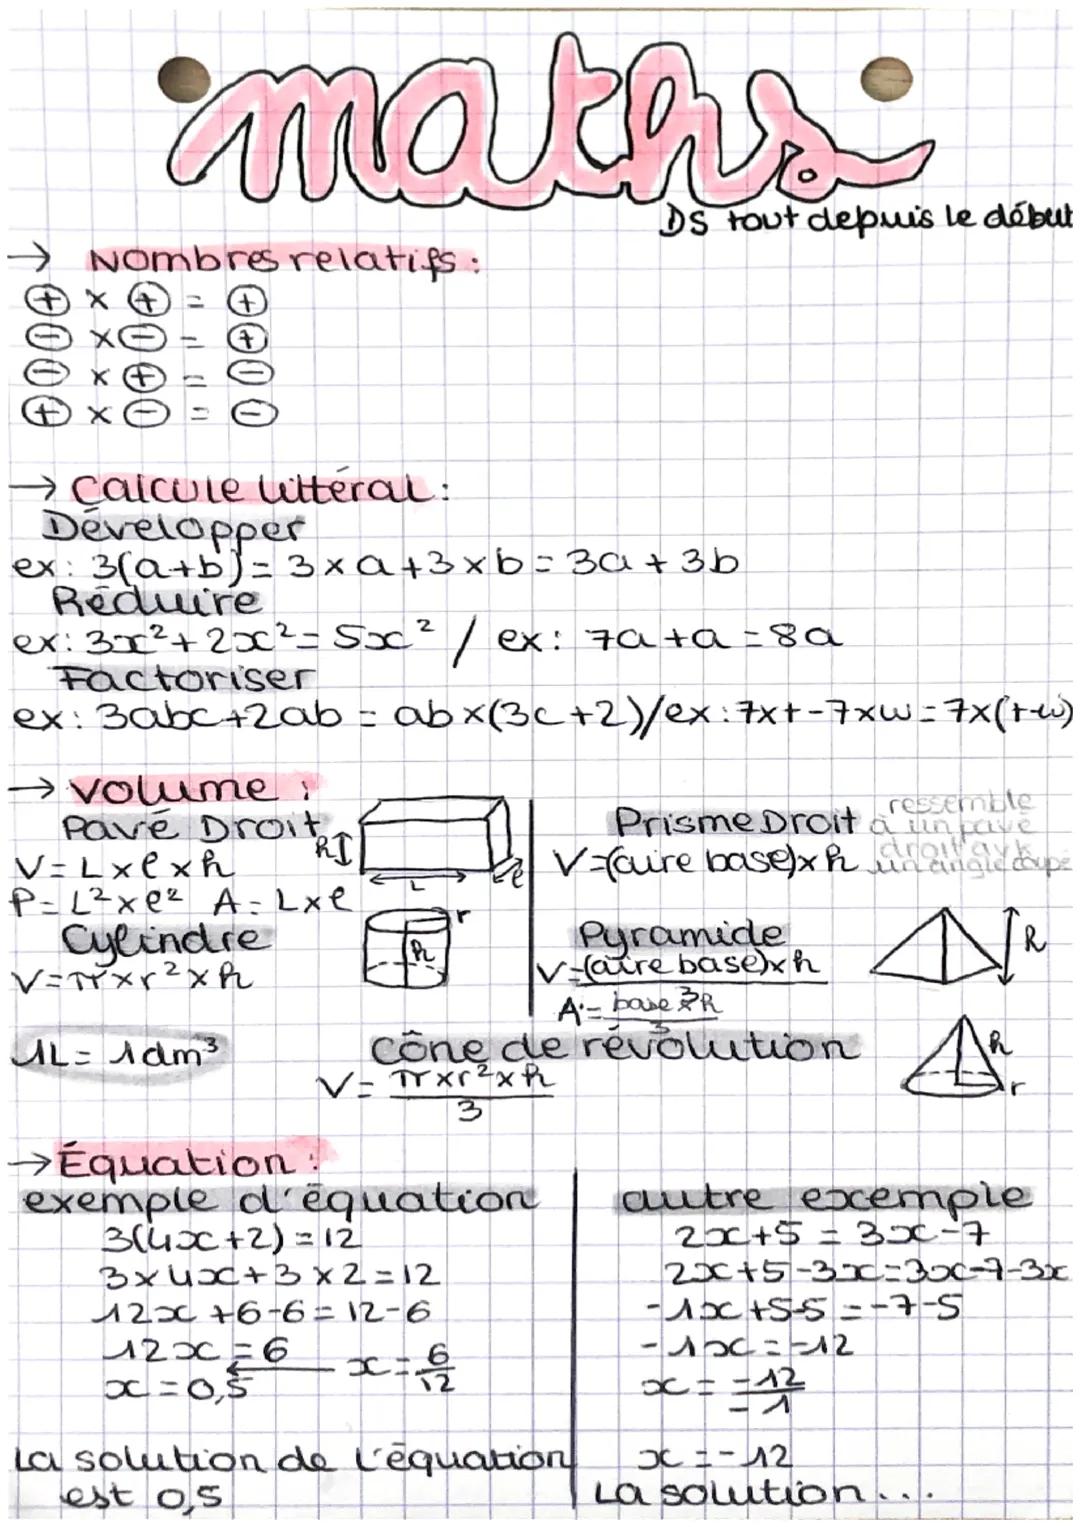 maths
DS tout depuis le début
→ Nombres relatifs :
⊕ × ⊕ = ⊕
⊖ × ⊖ = ⊕
⊖ × ⊕ = ⊖
⊕ × ⊖ = ⊖
→ Calcule littéral :
Développer
ex : 3(a+b) = 3×a+3×b = 3a+3b
Réduire
ex : 3x²+2x² = 5x² / ex : 7a+a = 8a
Factoriser
ex : 3abc+2ab = ab×(3c+2)/ex : 7×t-7×w = 7×(t-w)
→ Volume :
Pavé Droit
h
L
l
V = L×l×h
P = L²×l² A = L×l
Cylindre
r
h
V = π×r²×h
1L = 1dm³
Prisme Droit ressemble à un pavé droit avk un angle coupé
V = (aire base)×h
Pyramide
h
V = (aire base)×h
3
A = base × h
3
Cône de révolution
h
r
V = π×r²×h
3
→ Équation :
exemple d'équation
3(4x+2) = 12
3×4x+3×2 = 12
12x+6-6 = 12-6
12x = 6
x = 6/12
x = 0,5
La solution de l'équation
est 0,5
autre exemple
2x+5 = 3x-7
2x+5-3x = 3x-7-3x
-1x+5-5 = -7-5
-1x = -12
x = -12/-1
x = -12
La solution...